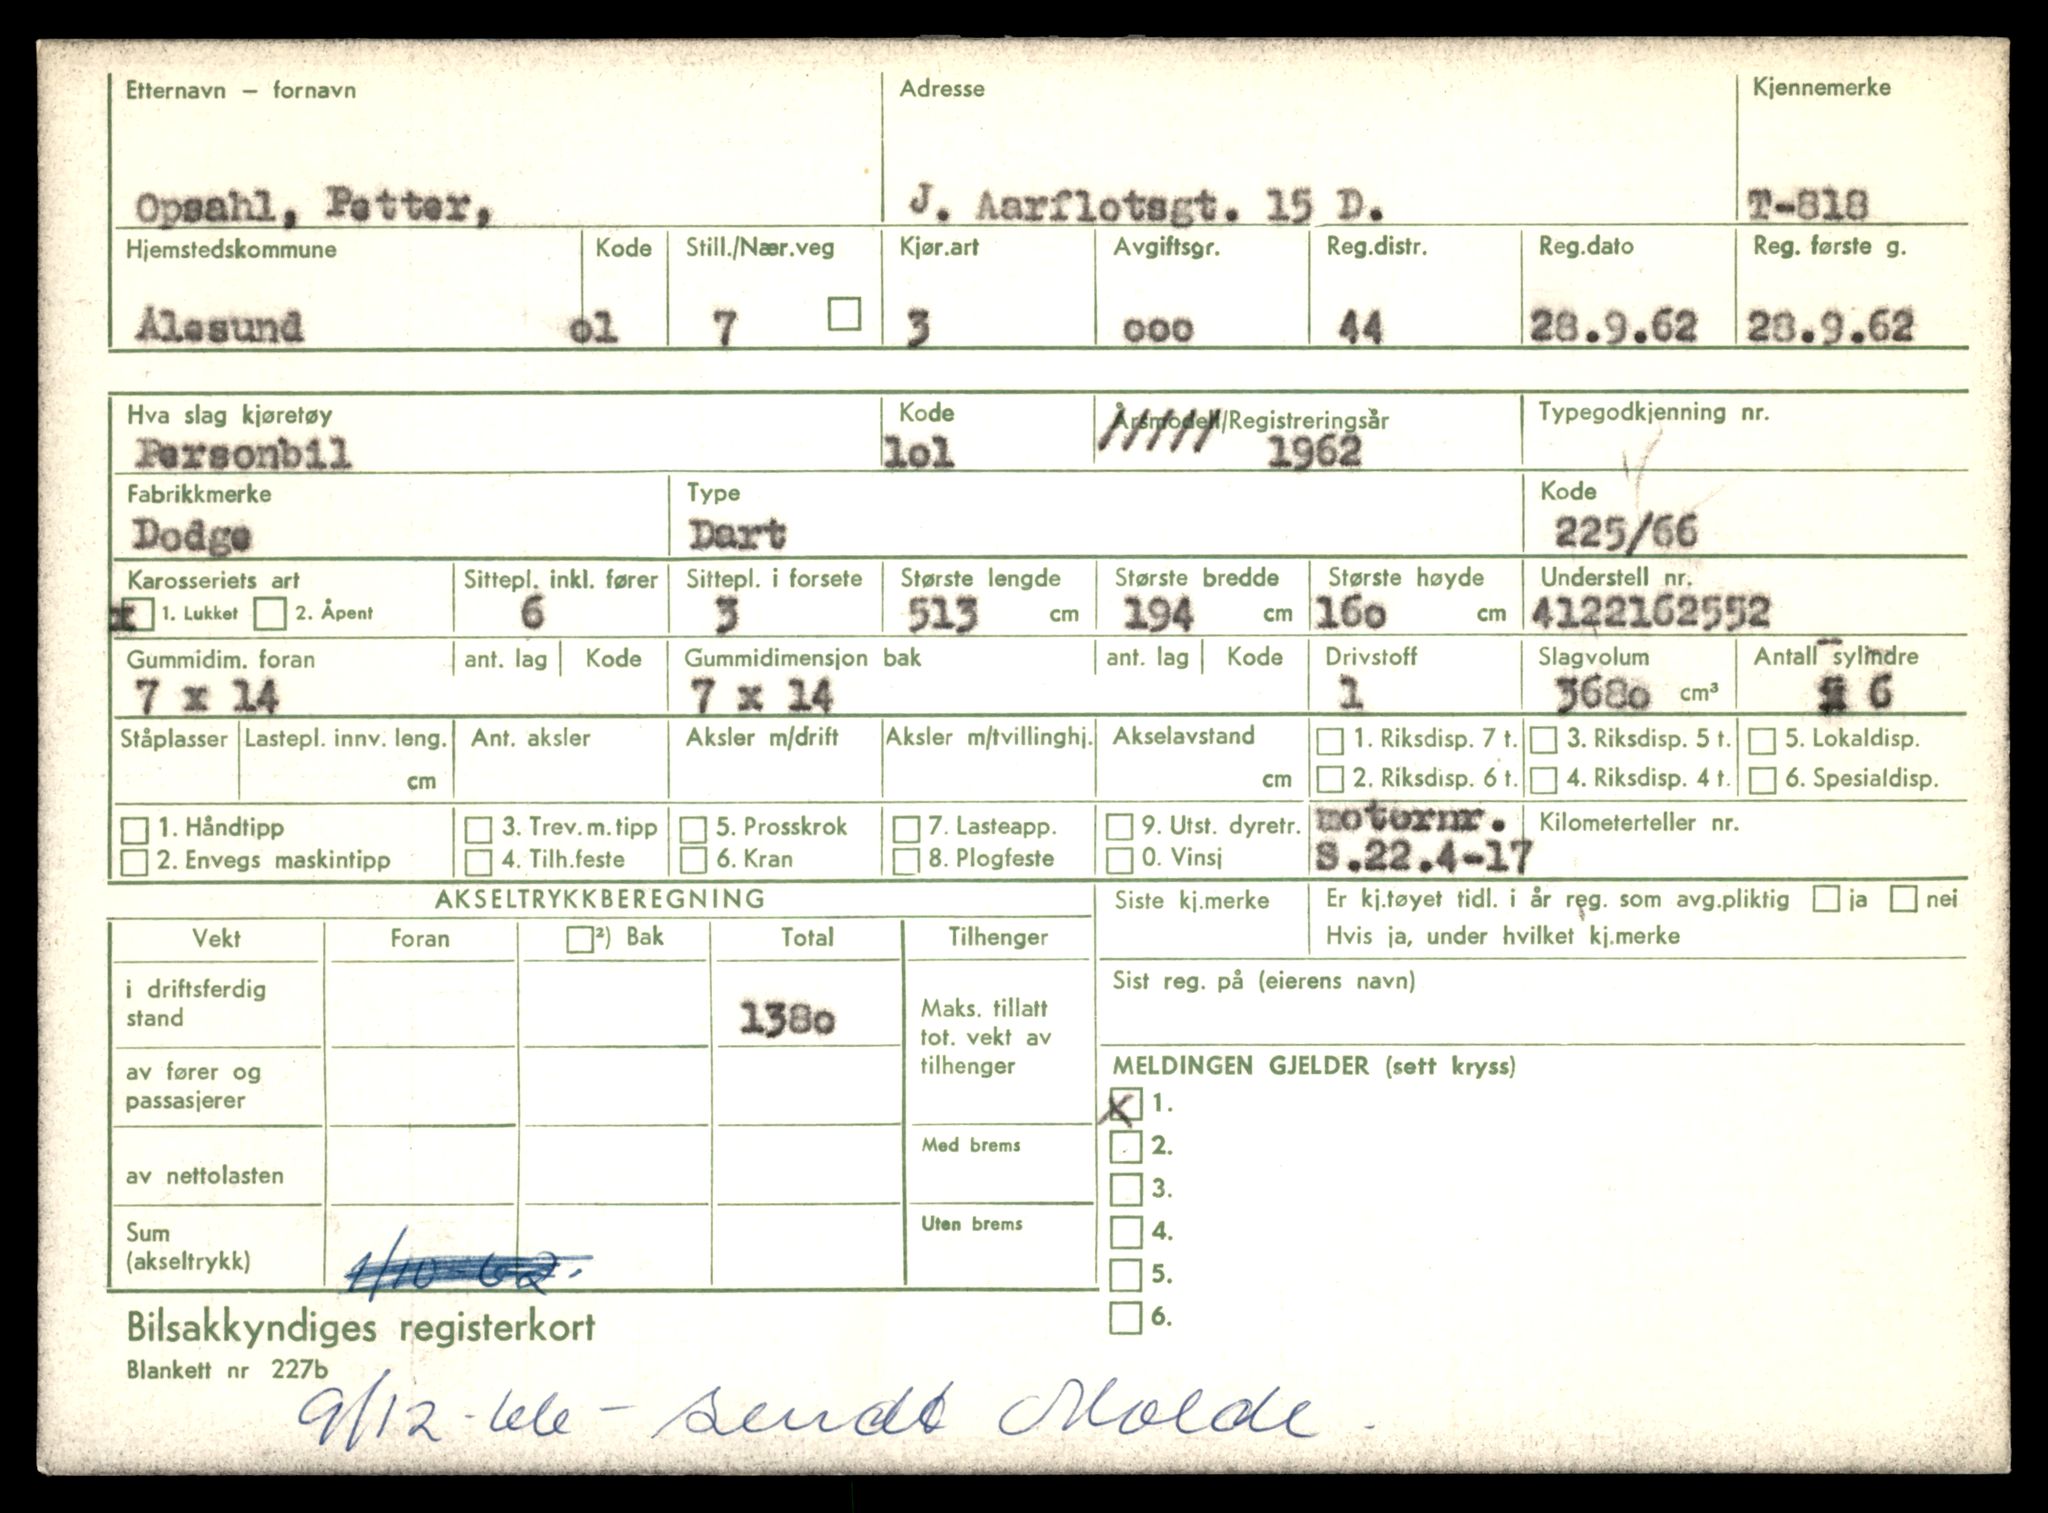 Etternavn – fornavn Adresse Kjennemerke
Opsahl, Petter, J. Aarflotsgt. 15 D. T-818
Hjemstedskommune Kode Still./Nær.veg Kjør.art Avgiftsgr. Reg.distr. Reg.dato Reg. første g.
Ålesund o1 7 3 ooo 44 28.9.62 28.9.62
Hva slag kjøretøy Kode Årsmodell/Registreringsår Typegodkjenning nr.
Personbil 1o1 ///// 1962
Fabrikkmerke Type Kode
Dodge Dart 225/66
Karosseriets art Sittepl. inkl. fører Sittepl. i forsete Største lengde Største bredde Største høyde Understell nr.
x 1. Lukket 2. Åpent 6 3 513 cm 194 cm 16o cm 4122162552
Gummidim. foran ant. lag Kode Gummidimensjon bak ant. lag Kode Drivstoff Slagvolum Antall sylindre
7 x 14 7 x 14 1 368o cm³ 6
Ståplasser Lastepl. innv. leng. Ant. aksler Aksler m/drift Aksler m/tvillinghj. Akselavstand 1. Riksdisp. 7 t. 3. Riksdisp. 5 t. 5. Lokaldisp.
cm cm 2. Riksdisp. 6 t. 4. Riksdisp. 4 t. 6. Spesialdisp.
1. Håndtipp 3. Trev.m.tipp 5. Prosskrok 7. Lasteapp. 9. Utst. dyretr. motornr. Kilometerteller nr.
2. Envegs maskintipp 4. Tilh.feste 6. Kran 8. Plogfeste 0. Vinsj S.22.4-17
AKSELTRYKKBEREGNING Siste kj.merke Er kj.tøyet tidl. i år reg. som avg.pliktig ja nei
Vekt Foran ²) Bak Total Tilhenger Hvis ja, under hvilket kj.merke
i driftsferdig
stand 138o
Maks. tillatt
tot. vekt av
tilhenger
Sist reg. på (eierens navn)
av fører og
passasjerer
MELDINGEN GJELDER (sett kryss)
x 1.
2.
3.
4.
5.
6.
av nettolasten Med brems
Sum
(akseltrykk) 1/10-62. Uten brems
Bilsakkyndiges registerkort
Blankett nr 227b
9/12-66 - sendt Molde.